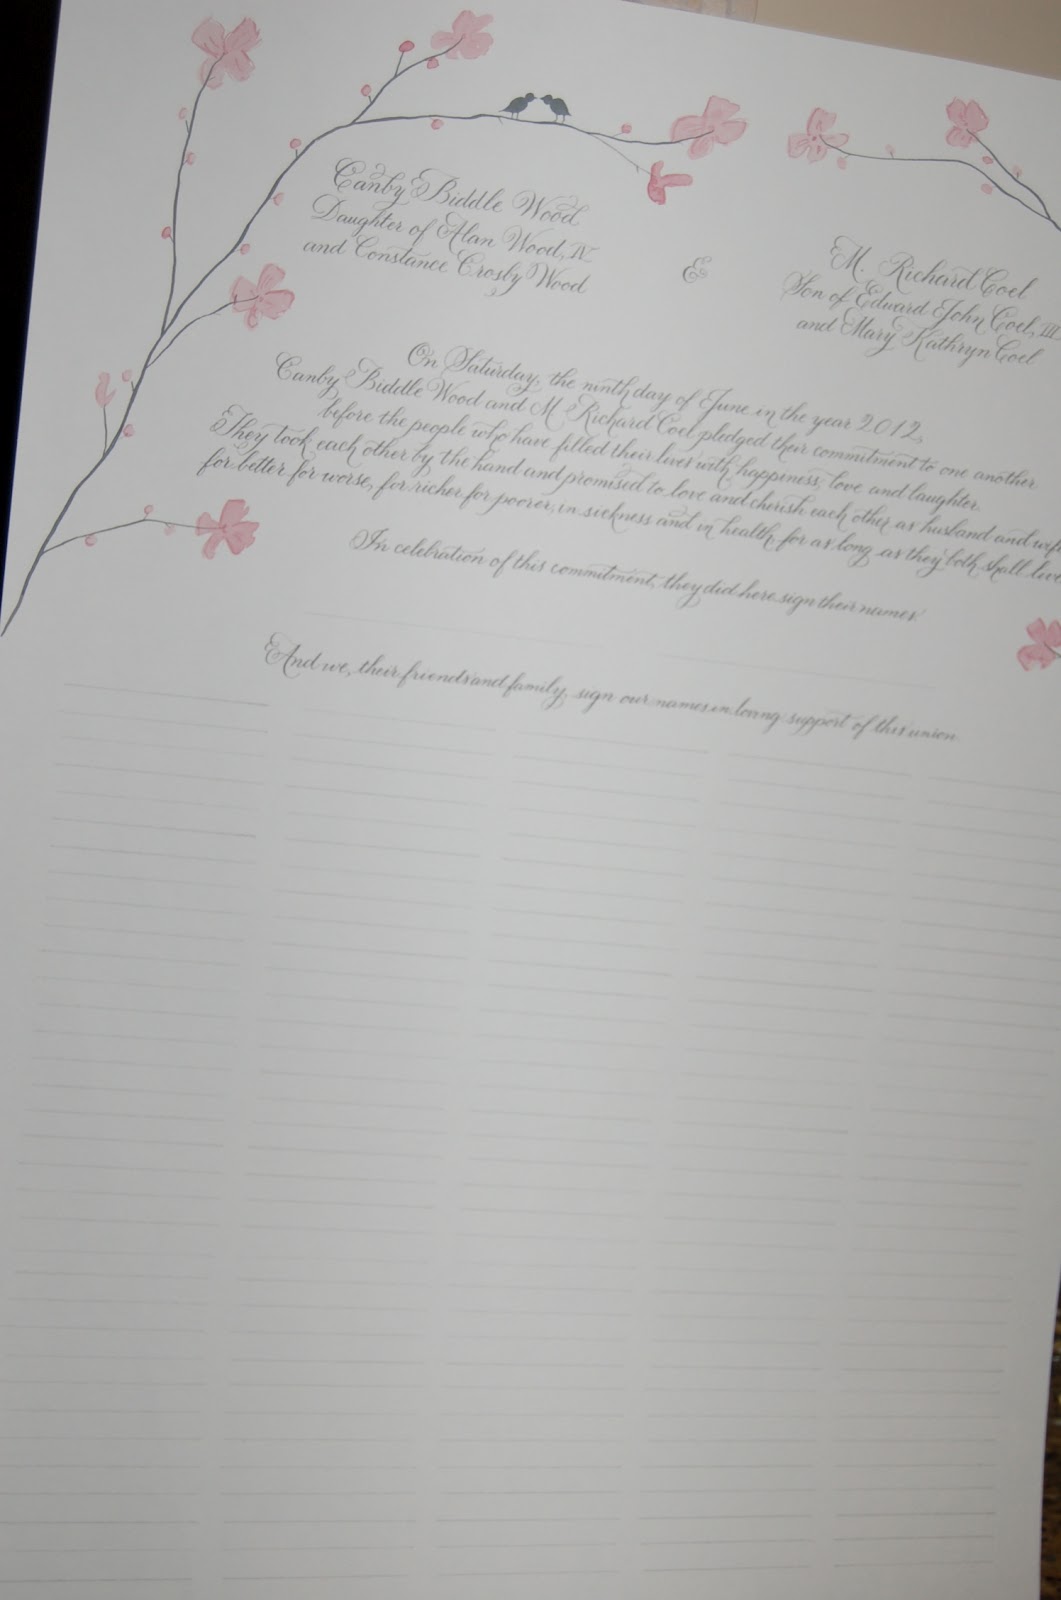 Canby Biddle Wood
Daughter of Alan Wood, IV
and Constance Crosby Wood
&
M. Richard Coel
Son of Edward John Coel, III
and Mary Kathryn Coel
On Saturday, the ninth day of June in the year 2012,
Canby Biddle Wood and M. Richard Coel pledged their commitment to one another
before the people who have filled their lives with happiness, love and laughter.
They took each other by the hand and promised to love and cherish each other as husband and wife
for better for worse, for richer for poorer, in sickness and in health, for as long as they both shall live
In celebration of this commitment, they did here sign their names.
And we, their friends and family, sign our names in loving support of this union.